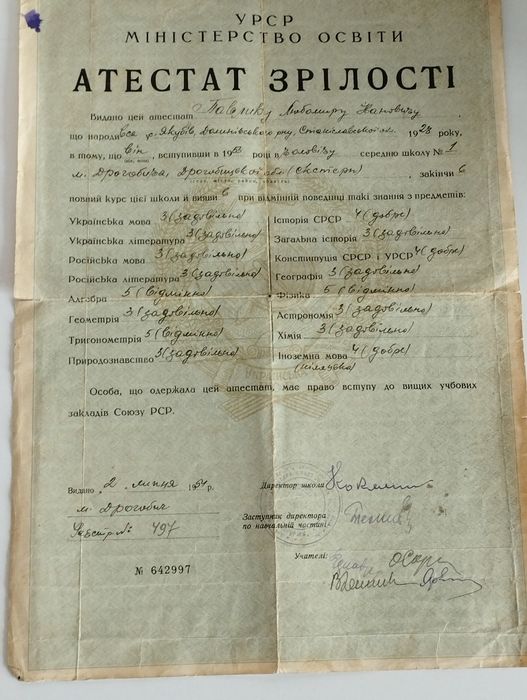 УРСР
МІНІСТЕРСТВО ОСВІТИ
АТЕСТАТ ЗРІЛОСТІ
Видано цей атестат Павлику Любомиру Івановичу
що народився с. Якубів, Долинівського рну, Станіславської обл. 1928 року,
в тому, що він, вступивши в 1953 році в чоловічу середню школу № 1
м. Дрогобича, Дрогобицької обл (екстерн), закінчив
повний курс цієї школи й виявив при відмінній поведінці такі знання з предметів:
Українська мова 3 (задовільно)
Українська література 3 (задовільно)
Російська мова 3 (задовільно)
Російська література 3 (задовільно)
Алгебра 5 (відмінно)
Геометрія 3 (задовільно)
Тригонометрія 5 (відмінно)
Природознавство 3 (задовільно)
Історія СРСР 4 (добре)
Загальна історія 3 (задовільно)
Конституція СРСР і УРСР 4 (добре)
Географія 3 (задовільно)
Фізика 5 (відмінно)
Астрономія 3 (задовільно)
Хімія 3 (задовільно)
Іноземна мова 4 (добре)
(німецька)
Особа, що одержала цей атестат, має право вступу до вищих учбових
закладів Союзу РСР.
Видано 2 липня 1954 р.
м. Дрогобич
№ 497
№ 642997
Директор школи
Заступник директора
по навчальній частині
Учителі: